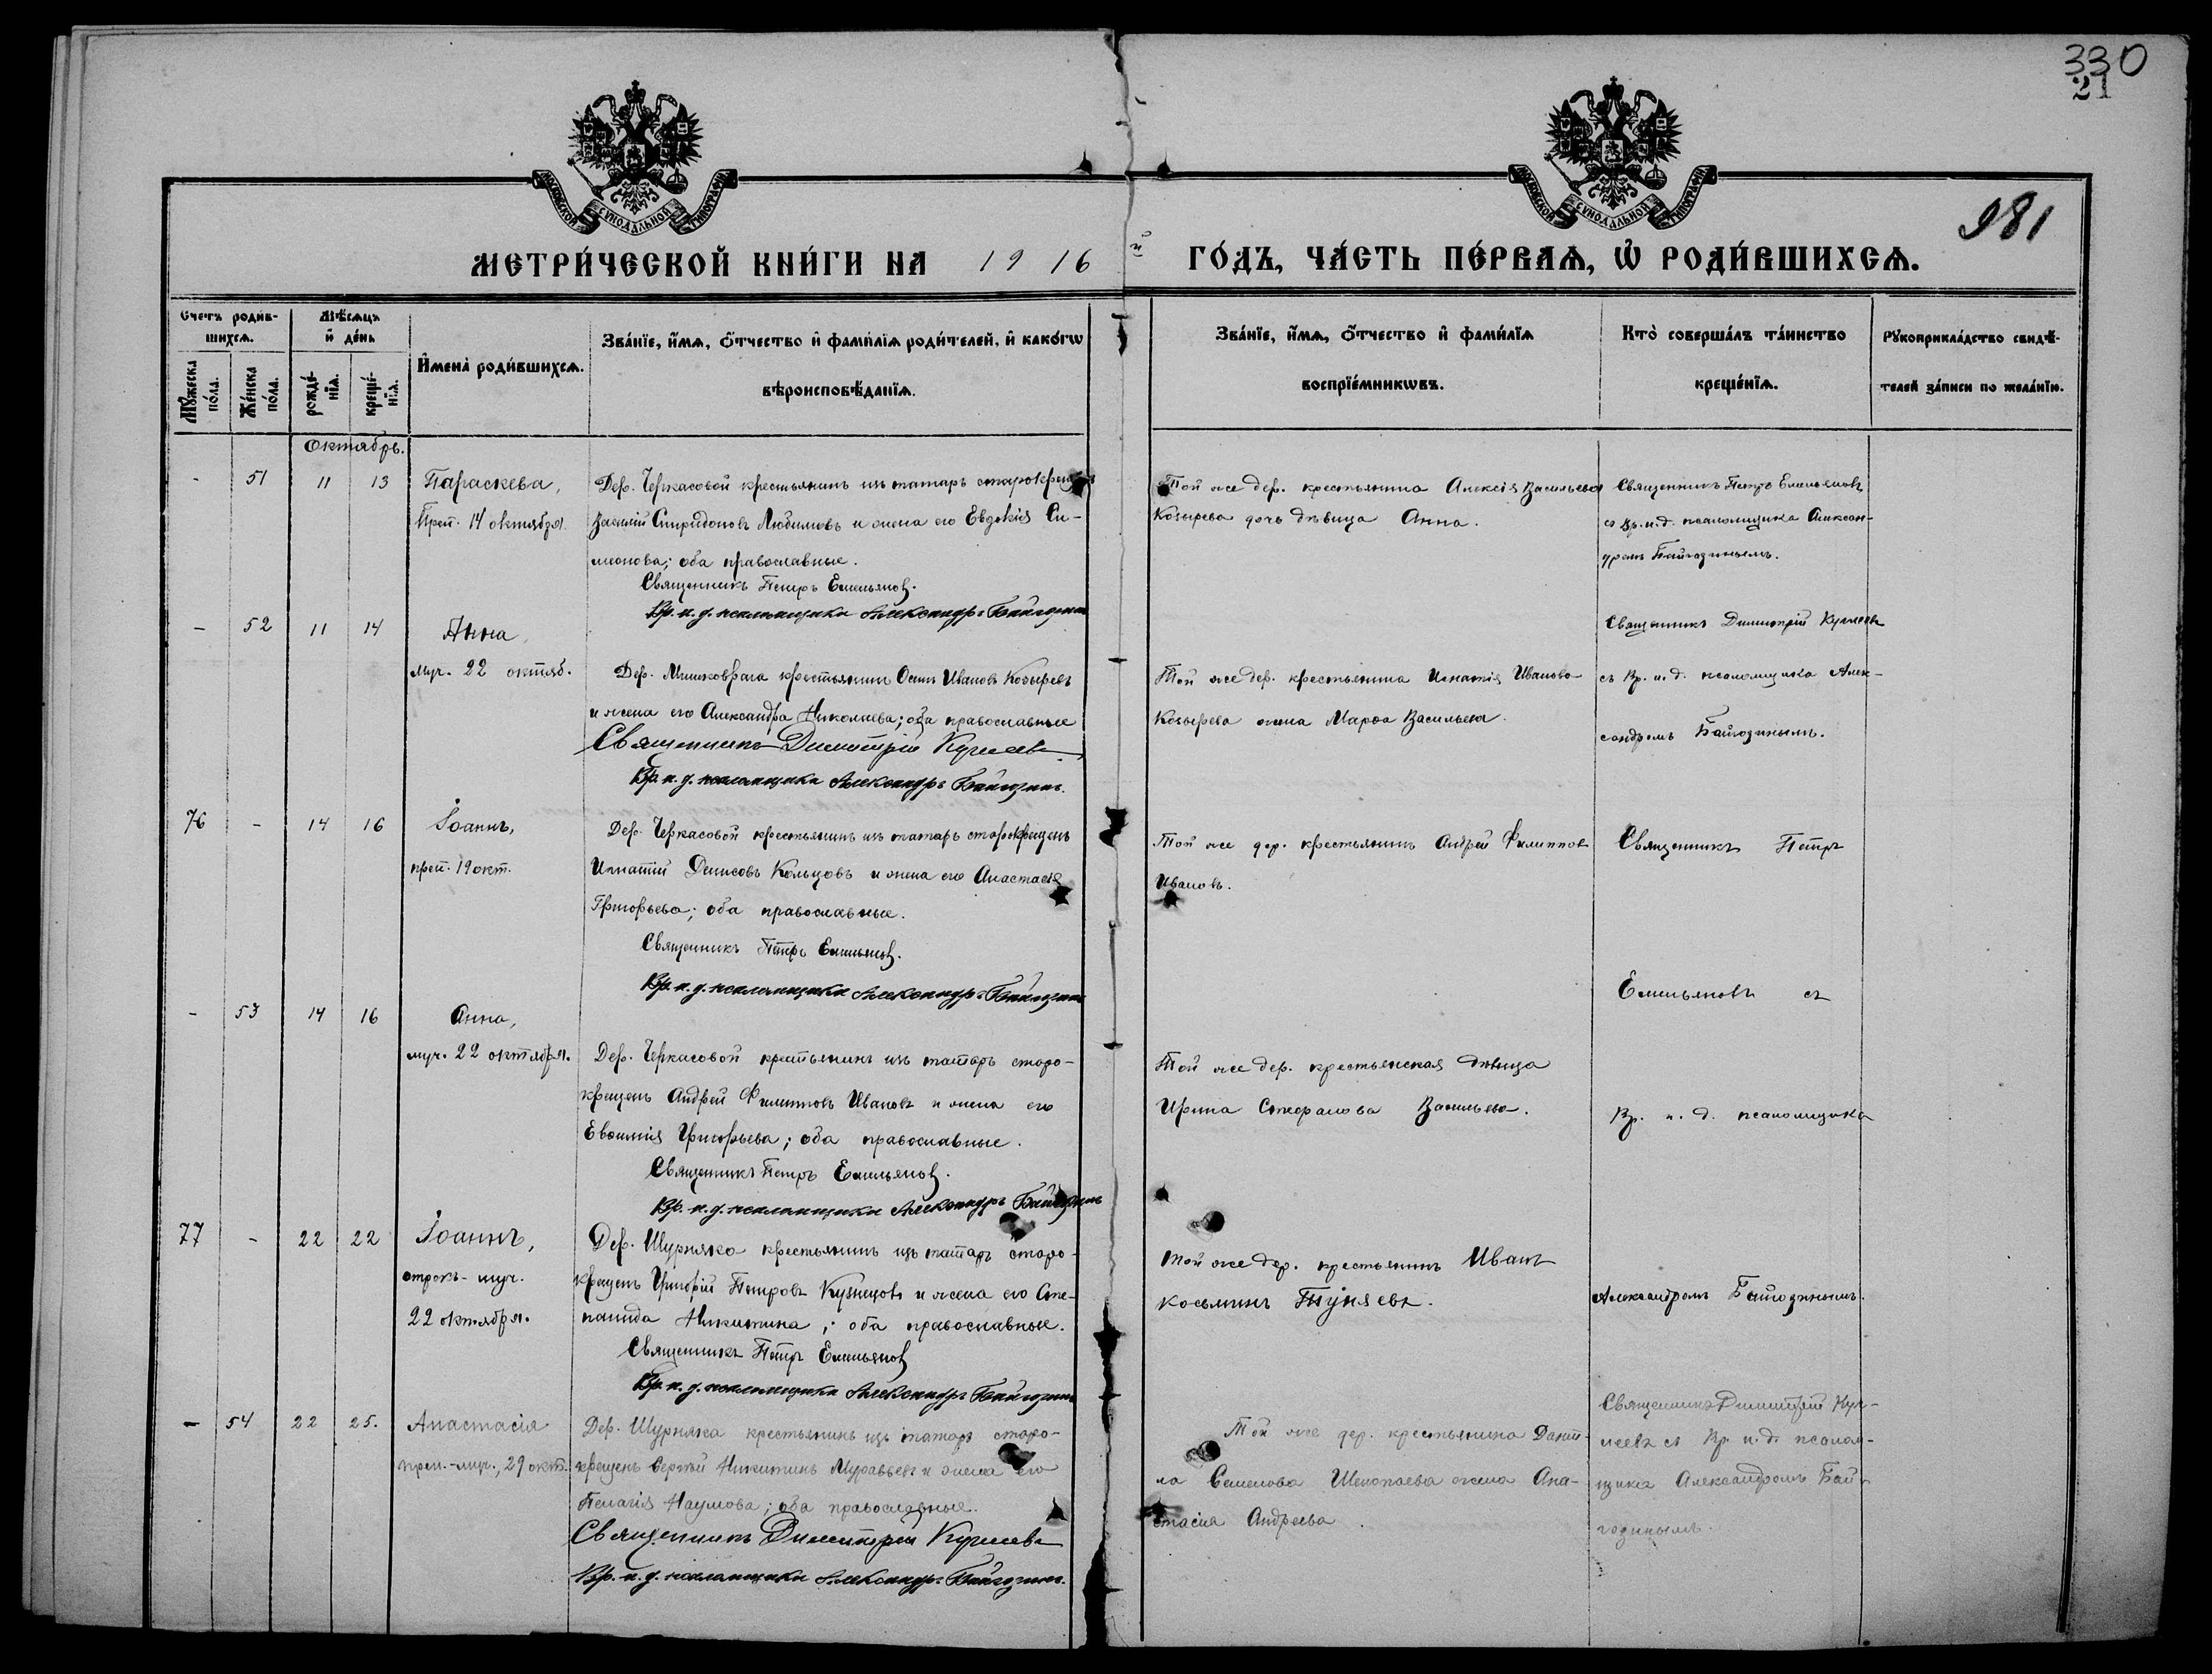 330
21
МОСКОВСКОЙ СѴНОДАЛЬНОЙ ТИПОГРАФІИ
МОСКОВСКОЙ СѴНОДАЛЬНОЙ ТИПОГРАФІИ
981
МЕТРИ́ЧЕСКОЙ КНИ́ГИ НА 1916 й ГО́ДЪ, ЧА́СТЬ ПЕ́РВАѦ, Ѽ РОДИ́ВШИХСѦ.
Счетъ родив-
шихсѧ.
Мужеска пола.
Женска пола.
Мѣсѧцъ и день
рожде-
нїѧ.
креще-
нїѧ.
Имена родившихсѧ.
Званїе, имѧ, отчество и фамилїѧ родителей, и какогѡ
вѣроисповѣданїѧ.
Званїе, имѧ, отчество и фамилїѧ
воспрїемникѡвъ.
Кто совершалъ таинство
крещенїѧ.
Рукоприкладство свидѣ-
телей записи по желанїю.
Октябрь.
- 51 11 13 Параскева,
Преп. 14 октября.
Дер. Черкасовой крестьянинъ изъ татаръ старокрещенъ
Василій Спиридоновъ Любимовъ и жена его Евдокія Си-
меонова; оба православные.
Священникъ Петръ Емельяновъ.
Вр. и. д. псаломщика Александръ Байгозинъ
Той же дер. крестьянина Алексія Васильева
Козырева дочь дѣвица Анна.
Священникъ Петръ Емельяновъ
съ Вр. и. д. псаломщика Алексан-
дромъ Байгозинымъ.
- 52 11 14 Анна,
муч. 22 октяб.
Дер. крестьянинъ Осипъ Ивановъ Козыревъ
и жена его Александра Николаева; оба православные
Священникъ Димитрій
Вр. и. д. псаломщика Александръ Байгозинъ.
Той же дер. крестьянина Игнатія Иванова
Козырева жена Марѳа Васильева.
Священникъ Димитрій
съ Вр. и. д. псаломщика Алек-
сандромъ Байгозинымъ.
76 - 14 16 Іоаннъ,
преп. 19 окт.
Дер. Черкасовой крестьянинъ изъ татаръ старокрещенъ
Игнатій Денисовъ Кольцовъ и жена его Анастасія
Григорьева; оба православные.
Священникъ Петръ Емельяновъ.
Вр. и. д. псаломщика Александръ Байгозинъ
Той же дер. крестьянинъ Андрей Филипповъ
Ивановъ.
Священникъ Петръ
Емельяновъ съ
Вр. и. д. псаломщика
Александромъ Байгозинымъ.
- 53 14 16 Анна,
муч. 22 октября.
Дер. Черкасовой крестьянинъ изъ татаръ старо-
крещенъ Андрей Филипповъ Ивановъ и жена его
Евѳимія Григорьева; оба православные.
Священникъ Петръ Емельяновъ.
Вр. и. д. псаломщика Александръ Байгозинъ
Той же дер. крестьянская дѣвица
Ирина Стефанова Васильева.
77 - 22 22 Іоаннъ,
отрокъ-муч.
22 октября.
Дер. Шурняка крестьянинъ изъ татаръ старо-
крещенъ Григорій Петровъ Кузнецовъ и жена его Сте-
панида Никитина; оба православные.
Священникъ Петръ Емельяновъ
Вр. и. д. псаломщика Александръ Байгозинъ
Той же дер. крестьянинъ Иванъ
Косьминъ Туняевъ.
- 54 22 25. Анастасія
преп.-муч., 29 окт.
Дер. Шурняка крестьянинъ изъ татаръ старо-
крещенъ Сергѣй Никитинъ Муравьевъ и жена его
Пелагія Наумова; оба православные.
Священникъ Димитрій
Вр. и. д. псаломщика Александръ Байгозинъ.
Той же дер. крестьянина Дани-
ла Семенова жена Ана-
стасія Андреева.
Священникъ Димитрій
съ Вр. и. д. псалом-
щика Александромъ Бай-
гозинымъ.